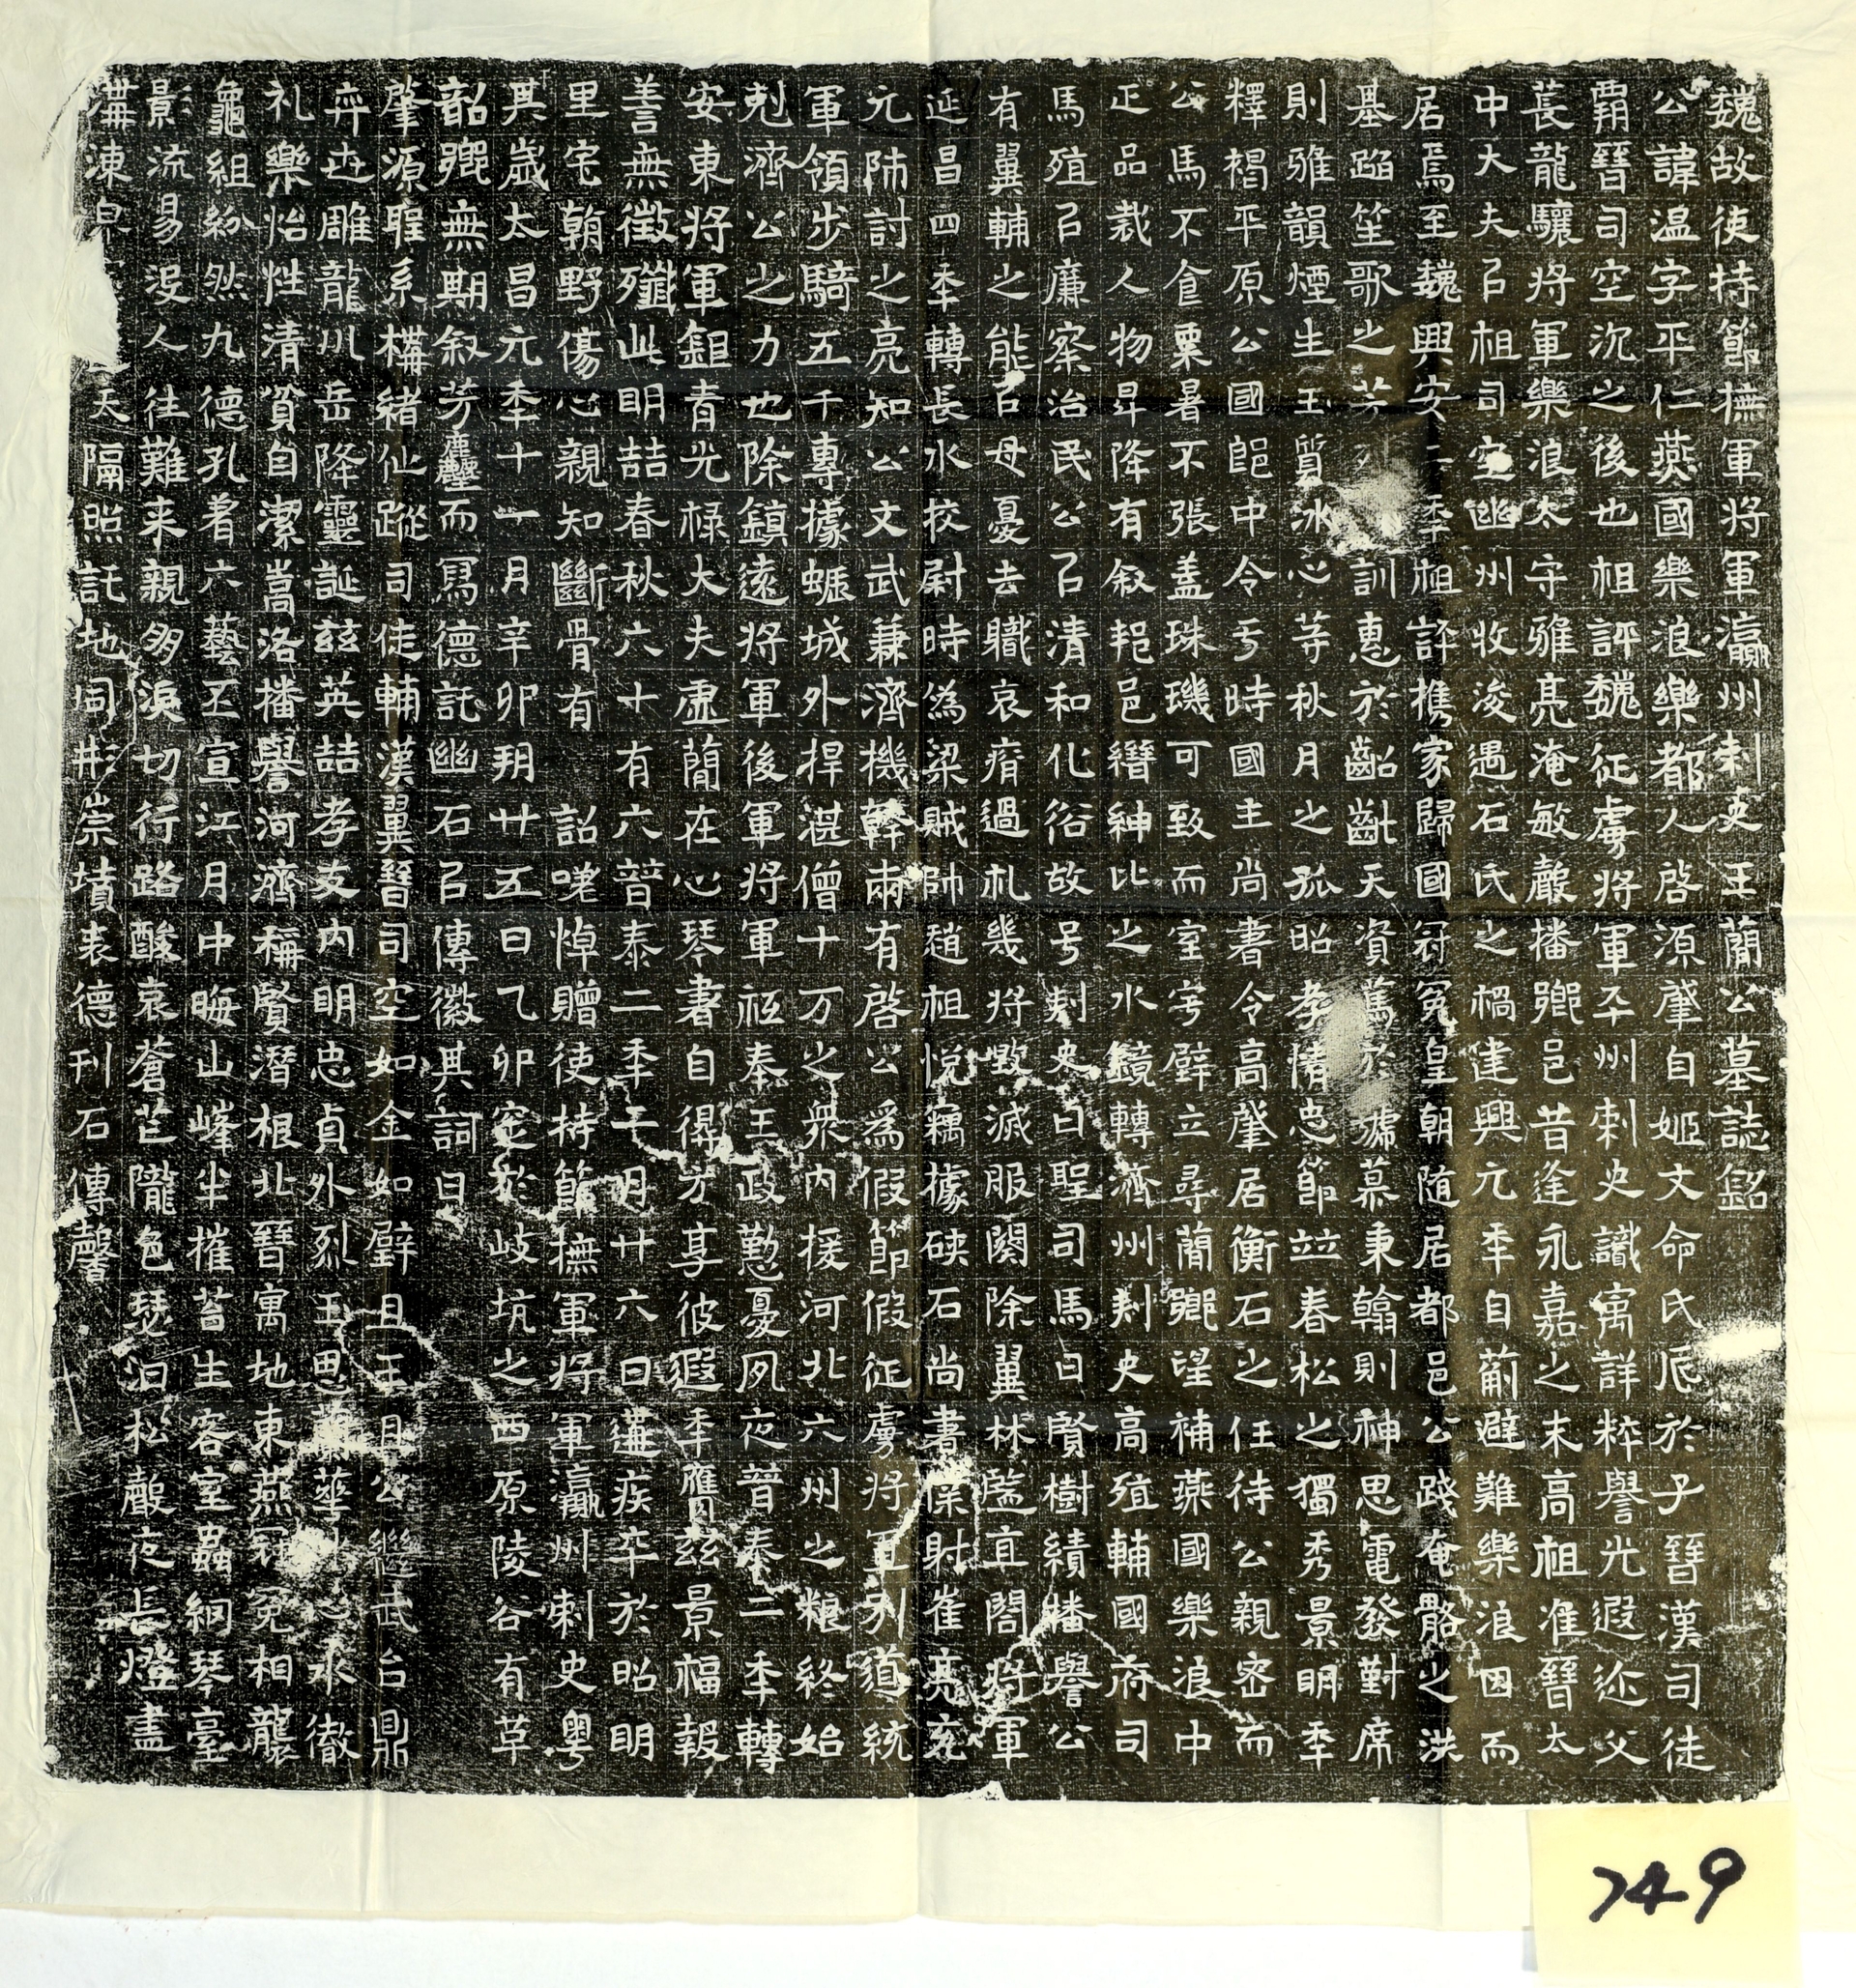 魏故使持節撫軍將軍瀛州刺史王蕳公墓誌銘
公諱温字平仁燕國樂浪樂都人啓源肇自姬文命氏㡳於子晉漢司徒
霸晉司空沉之後也祖評魏征虜將軍平州刺史識寓詳粹譽光遐迩父
萇龍驤將軍樂浪太守雅亮淹敏聲播鄉邑昔逢永嘉之末高祖准晉太
中大夫以祖司空幽州牧浚遇石氏之禍建興元年自薊避難樂浪因而
居焉至魏興安二年祖評携家歸國冠冕皇朝随居都邑公踐奄骼之洪
基蹈笙歌之芳訓惠於齠齔天資篤於㯉慕秉翰則神思電發對席
則雅韻煙生玉質冰心等秋月之孤昭孝情忠節竝春松之獨秀景明年
釋褐平原公國郎中令于時國主尚書令高肇居衡石之任待公親密而
公馬不食粟暑不張盖珠璣可致而室宇壁立尋蕳鄉望補燕國樂浪中
正品裁人物昇降有叙挹邑縉紳比之水鏡轉濟州刾史高殖輔國府司
馬殖以廉察治民公以清和化俗故号刾史曰聖司馬曰賢樹績播譽公
有翼輔之能以母憂去職哀瘠過礼幾將毀滅服闋除翼林監直閤將軍
延昌四年轉長水挍尉時為梁賊帥趙祖悅竊據硤石尚書僕射崔亮充
元帥討之亮知公文武兼濟機幹兩有啓公為假節假征虜將軍別道統
軍領步騎五千專據蛎城外捍湛僧十万之衆內援河北六州之粮終始
剋濟公之力也除鎮遠將軍後軍將軍祗奉王政懃憂夙夜普泰二年轉
安東將軍銀青光祿大夫虛蕳在心琴書自得方享彼遐年膺兹景福報
善無徵殲此明喆春秋六十有六普泰二年二月廿六日遘疾卒於昭明
里宅朝野傷心親知斷骨有詔嗟悼贈使持節撫軍將軍瀛州刺史粵
其歲太昌元年十一月辛卯朔廿五日乙卯窆於岐坑之西原陵谷有草
韶鄉無期叙芳塵而寫德託幽石以傳徽其詞曰
肇源聖系構緒仙蹤司徒輔漢翼晉司空如金如璧且王且公繼武台鼎
齊世雕龍川岳降靈誕兹英喆孝友內明忠貞外烈玉思華水徹
礼樂怡性清貧自潔嵩洛播譽河濟稱賢潛根北晉寓地東燕冠冕相襲
龜組紛然九德孔着六藝丕宣江月中晦山峰半摧苔生客室蟲網琴臺
影流易沒人往難来親多淚切行路酸哀蒼芒隴色瑟汩松聲夜長燈盡
溝凍泉天隔照託地同井崇墳表德刊石傳馨
749